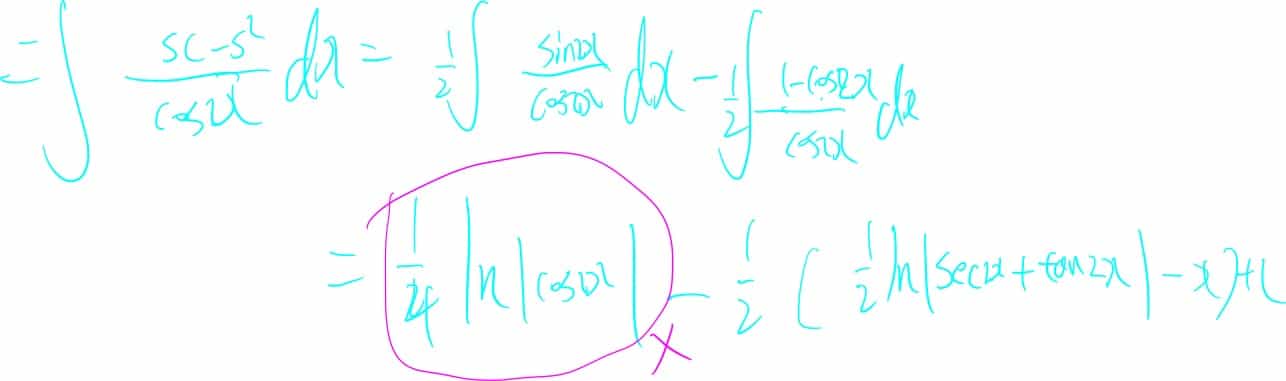 = ∫ (sc-s²)/(cos2x) dx = 1/2 ∫ (sin2x)/(cos2x) dx - 1/2 ∫ (1-cos2x)/(cos2x) dx
= 1/4 ln|cos2x| - 1/2 ( 1/2 ln|sec2x + tan2x| - x)+c
×